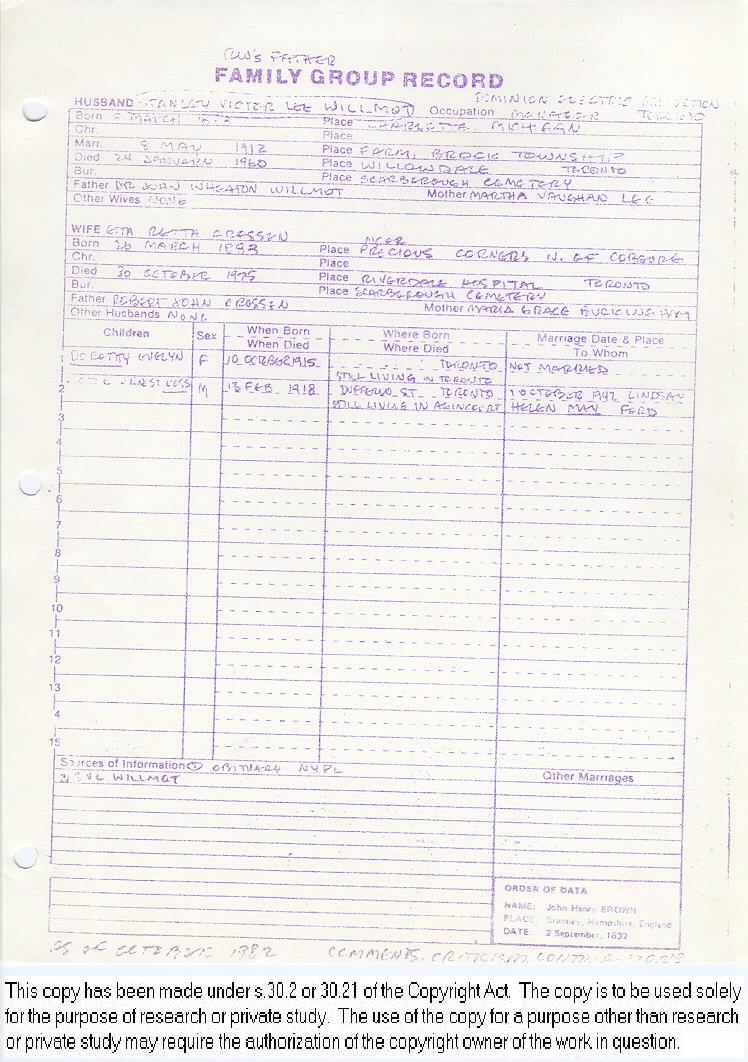 FATHER
FAMILY GROUP RECORD
HUSBAND STANLEY VICTOR LEE WILLMOT Occupation DOMINION ELECTRIC MANAGER TORONTO
Born MARCH Place CHARLOTTE, MICHIGAN
Chr. Place
Marr. 8 MAY 1912 Place FARM, BROCK TOWNSHIP
Died 24 JANUARY 1960 Place WILLOWDALE TORONTO
Bur. Place SCARBOROUGH CEMETERY
Father DR JOHN WHEATON WILLMOT Mother MARTHA VAUGHAN LEE
Other Wives NONE
WIFE ETTA RETTA CROSSEN
Born 26 MARCH Place NEAR PRECIOUS CORNERS N. OF COBOURG
Chr. Place
Died 30 OCTOBER 1975 Place RIVERDALE HOSPITAL TORONTO
Bur. Place SCARBOROUGH CEMETERY
Father ROBERT JOHN CROSSEN Mother MARIA GRACE BUCKINGHAM
Other Husbands NONE
Children Sex When Born When Died Where Born Where Died Marriage Date & Place To Whom
1 DOROTHY EVELYN F 10 OCTOBER 1915 TORONTO NOT MARRIED
STILL LIVING IN TORONTO
2 ERNEST M 13 FEB 1918 ST TORONTO 1 OCTOBER 1942 LINDSAY
STILL LIVING IN AGINCOURT HELEN MAY FORD
3
4
5
6
7
8
9
10
11
12
13
4
15
Sources of Information ① OBITUARY NYPL Other Marriages
WILLMOT
ORDER OF DATA
NAME: John Henry BROWN
PLACE: Bramley, Hampshire, England
DATE: 2 September, 1832
AS OF OCTOBER 1982 COMMENTS, CRITICISM,
This copy has been made under s.30.2 or 30.21 of the Copyright Act. The copy is to be used solely
for the purpose of research or private study. The use of the copy for a purpose other than research
or private study may require the authorization of the copyright owner of the work in question.